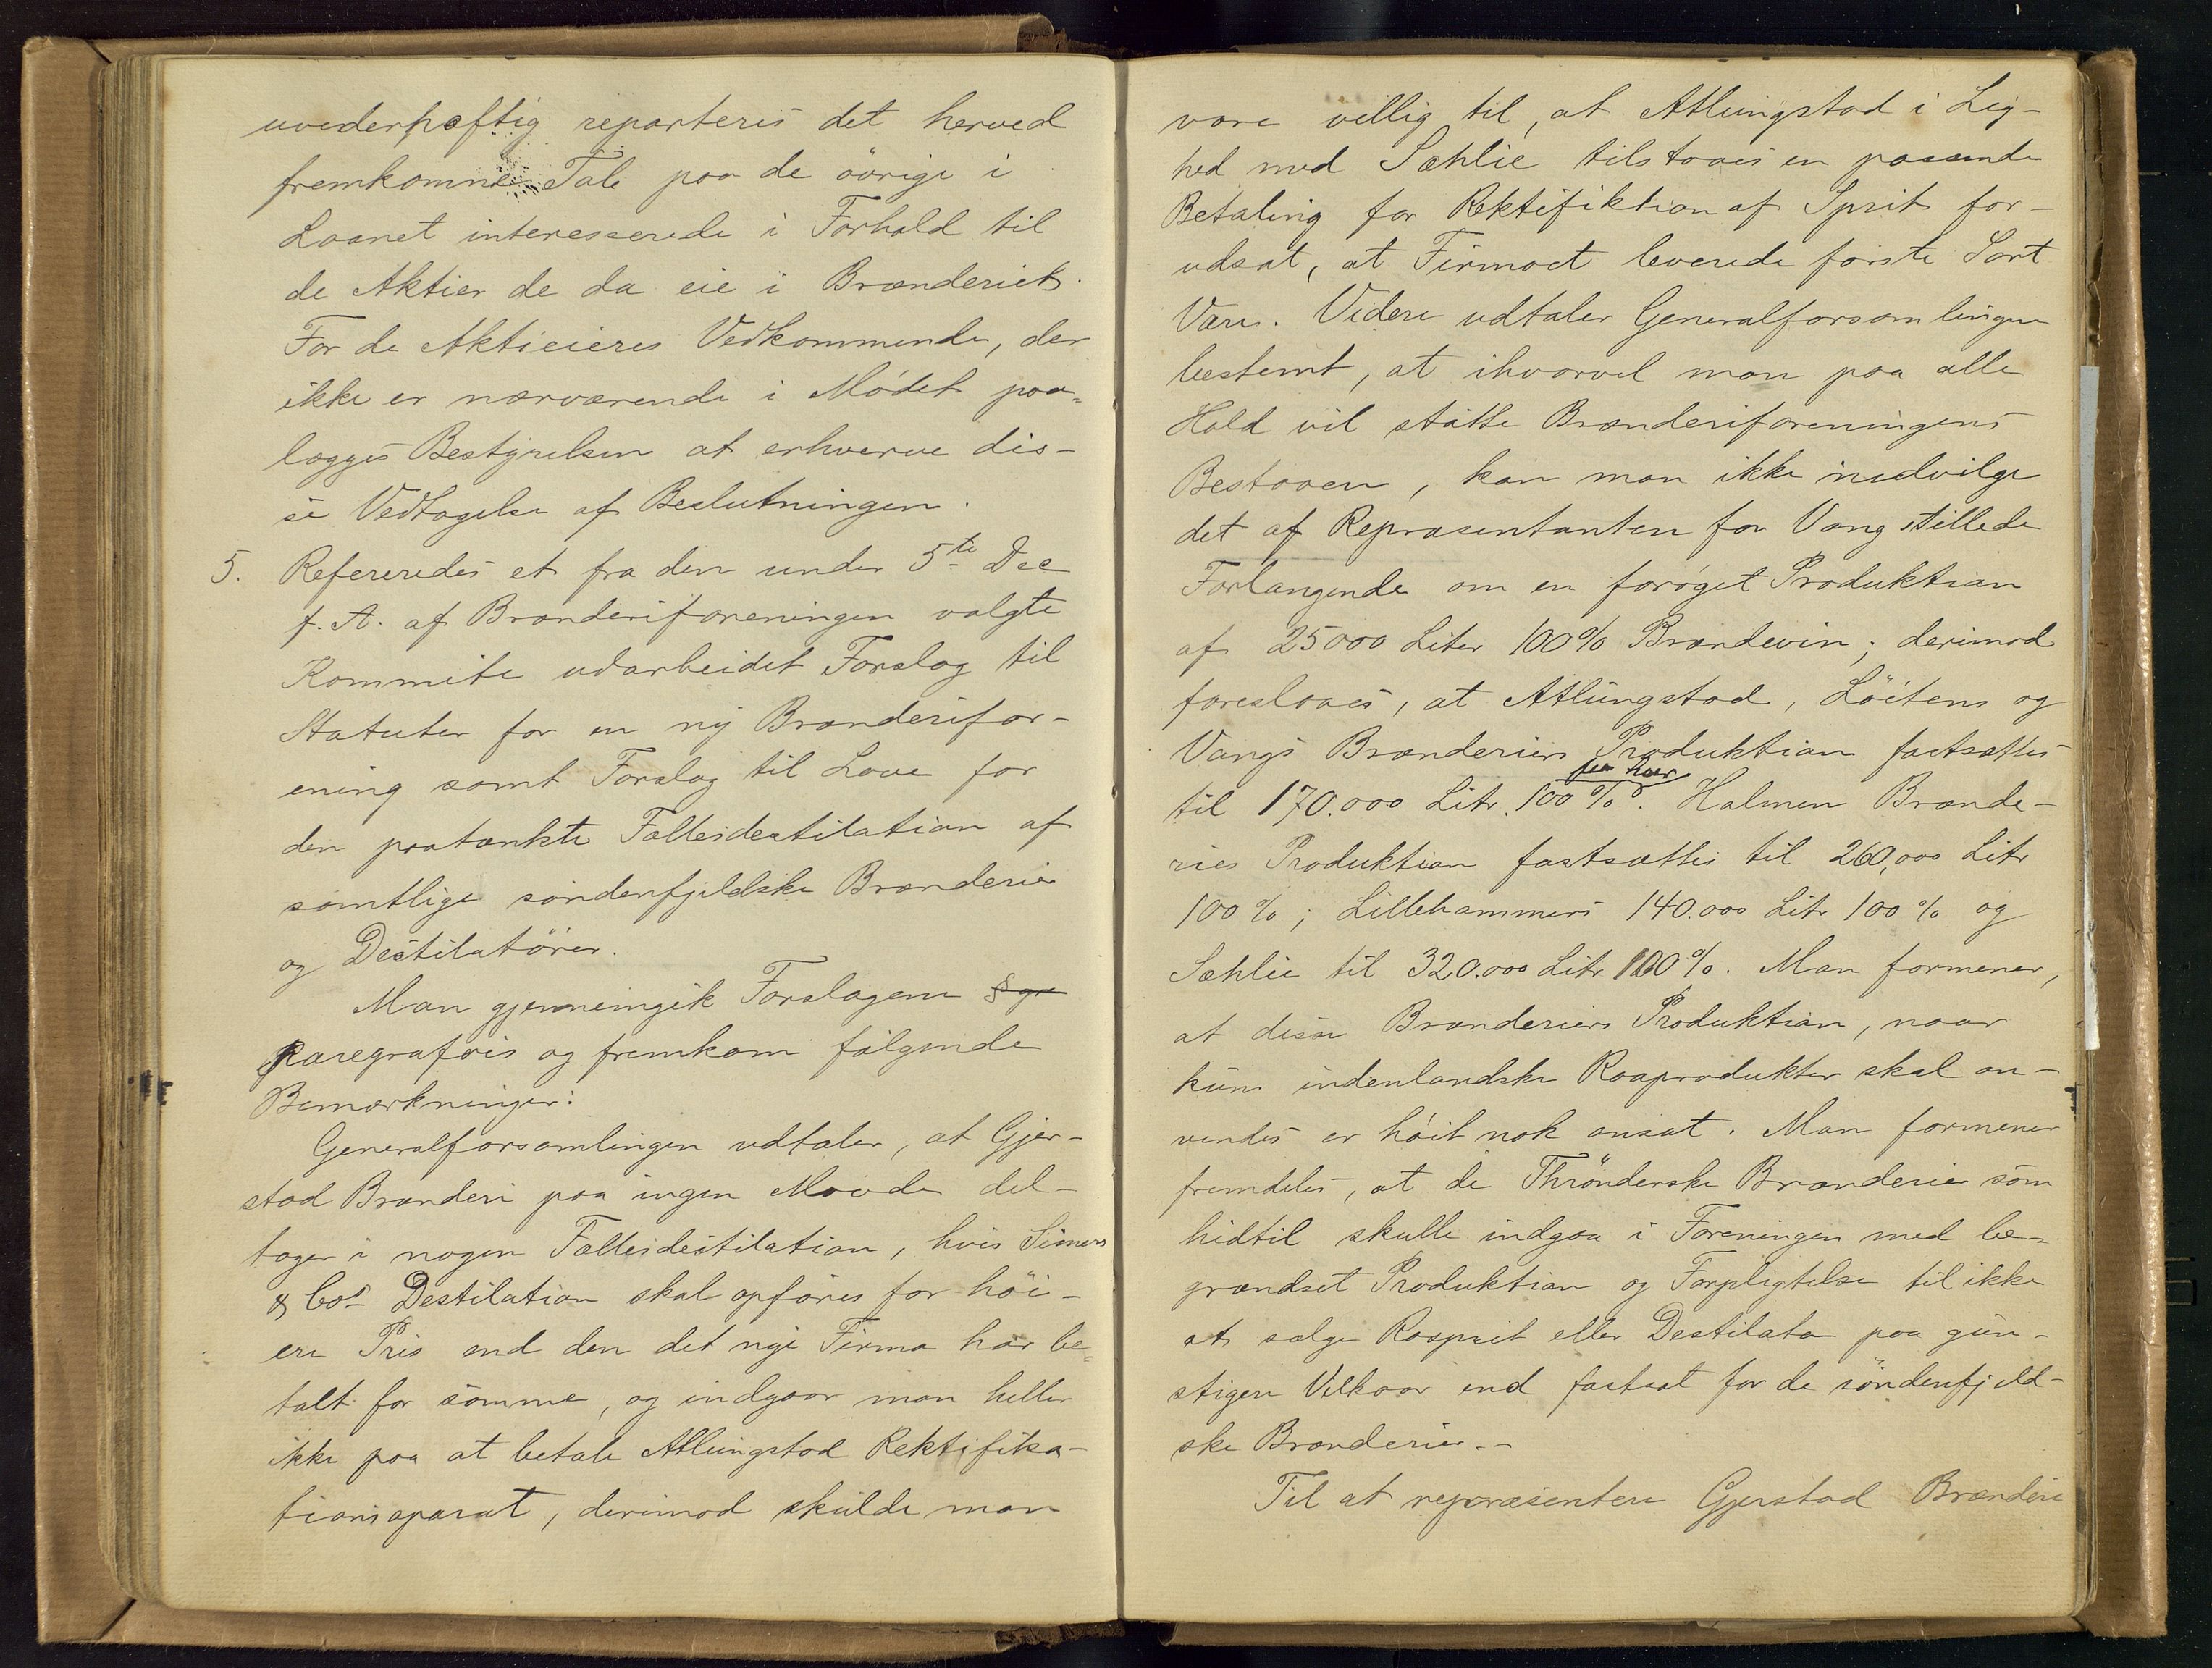 uvederhæftig reparteres det herved
fremkomne Tab paa de övrige i
Laanet interesserede i Forhold til
de Aktier de da eie i Brænderiet.
For de Aktieieres Vedkommende, der
ikke er nærværende i Mödet paa=
lægges Bestyrelsen at erhverve dis-
se Vedtagelse af Beslutningen.
5. Refereredes et fra den under 5te Dec
f. A. af Brænderiforeningen valgte
Kommite udarbeidet Forslag til
Statuter for en ny Brænderifor-
ening samt Forslag til Love for
den paatænkte Fællesdestilation af
samtlige söndenfjeldske Brænderier
og Destilatörer.
Man gjennemgik Forslagene
Paregrafvis og fremkom fölgende
Bemærkninger:
Generalforsamlingen udtaler, at Gjer-
stad Brænderi paa ingen Maade del-
tager i nogen Fællesdestilation, hvis Simers
& Cos Destilation skal opföres for höi-
ere Pris end den det nye Firma har be=
talt for samme, og indgaar man heller
ikke paa at betale Atlungstad Rektifika-
tionsaparat, derimod skulde man
være villig til, at Atlungstad i Lig-
hed med Sæhlie tilstaaes en passende
Betaling for Rektifiktion af Sprit for-
udsat, at Firmaet leverede förste Sort
Vare. Videre udtaler Generalforsamlingen
bestemt, at ihvorvel man paa alle
Hold vil stötte Brænderiforeningens
Bestaaen, kan man ikke indvilge
det af Repræsentanten for Vang stillede
Forlangende om en foröget Produktion
af 25000 Liter 100% Brændevin; derimod
foreslaaes, at Atlungstad, Löitens og
Vangs Brænderiers Produktion fastsættes
til 170.000 Litr. 100% per hver. Holmen Brænde-
ries Produktion fastsættes til 260,000 Litr
100%; Lillehammers 140.000 Litr 100% og
Sæhlie til 320.000 Litr 100%. Man formener,
at disse Brænderiers Produktion, naar
kun indenlandske Raaprodukter skal an-
vendes er höit nok ansat. Man formener
fremdeles, at de Thrönderske Brænderier som
hidtil skulle indgaa i Foreningen med be=
grændset Produktion og Forpligtelse til ikke
at sælge Rasprit eller Destilata paa gun-
stigere Vilkaar end fastsat for de söndenfjeld-
ske Brænderier.-
Til at repræsentere Gjerstad Brænderi